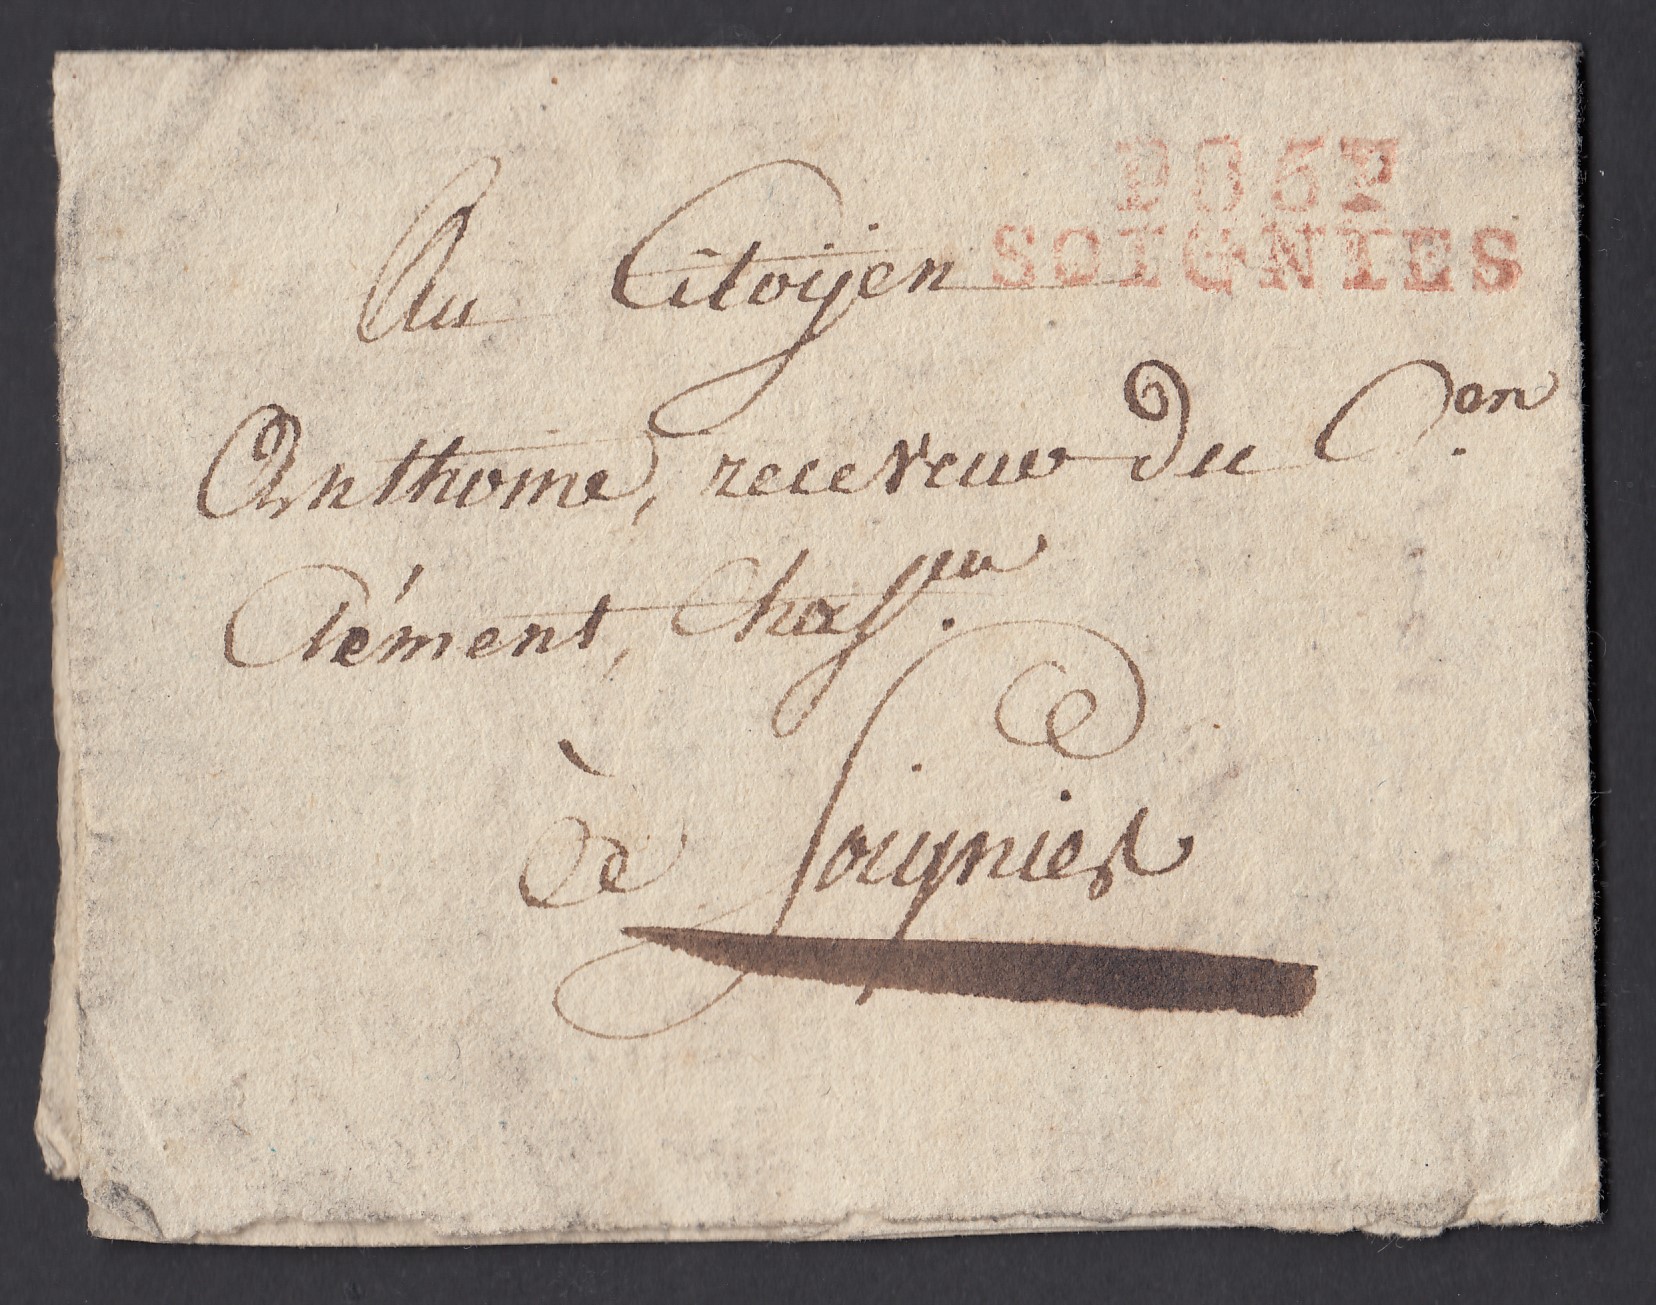 P86P
SOIGNIES
Au Citoyen
Anthome, receveur du C.on
Clément, Chass.eur
à Soignies